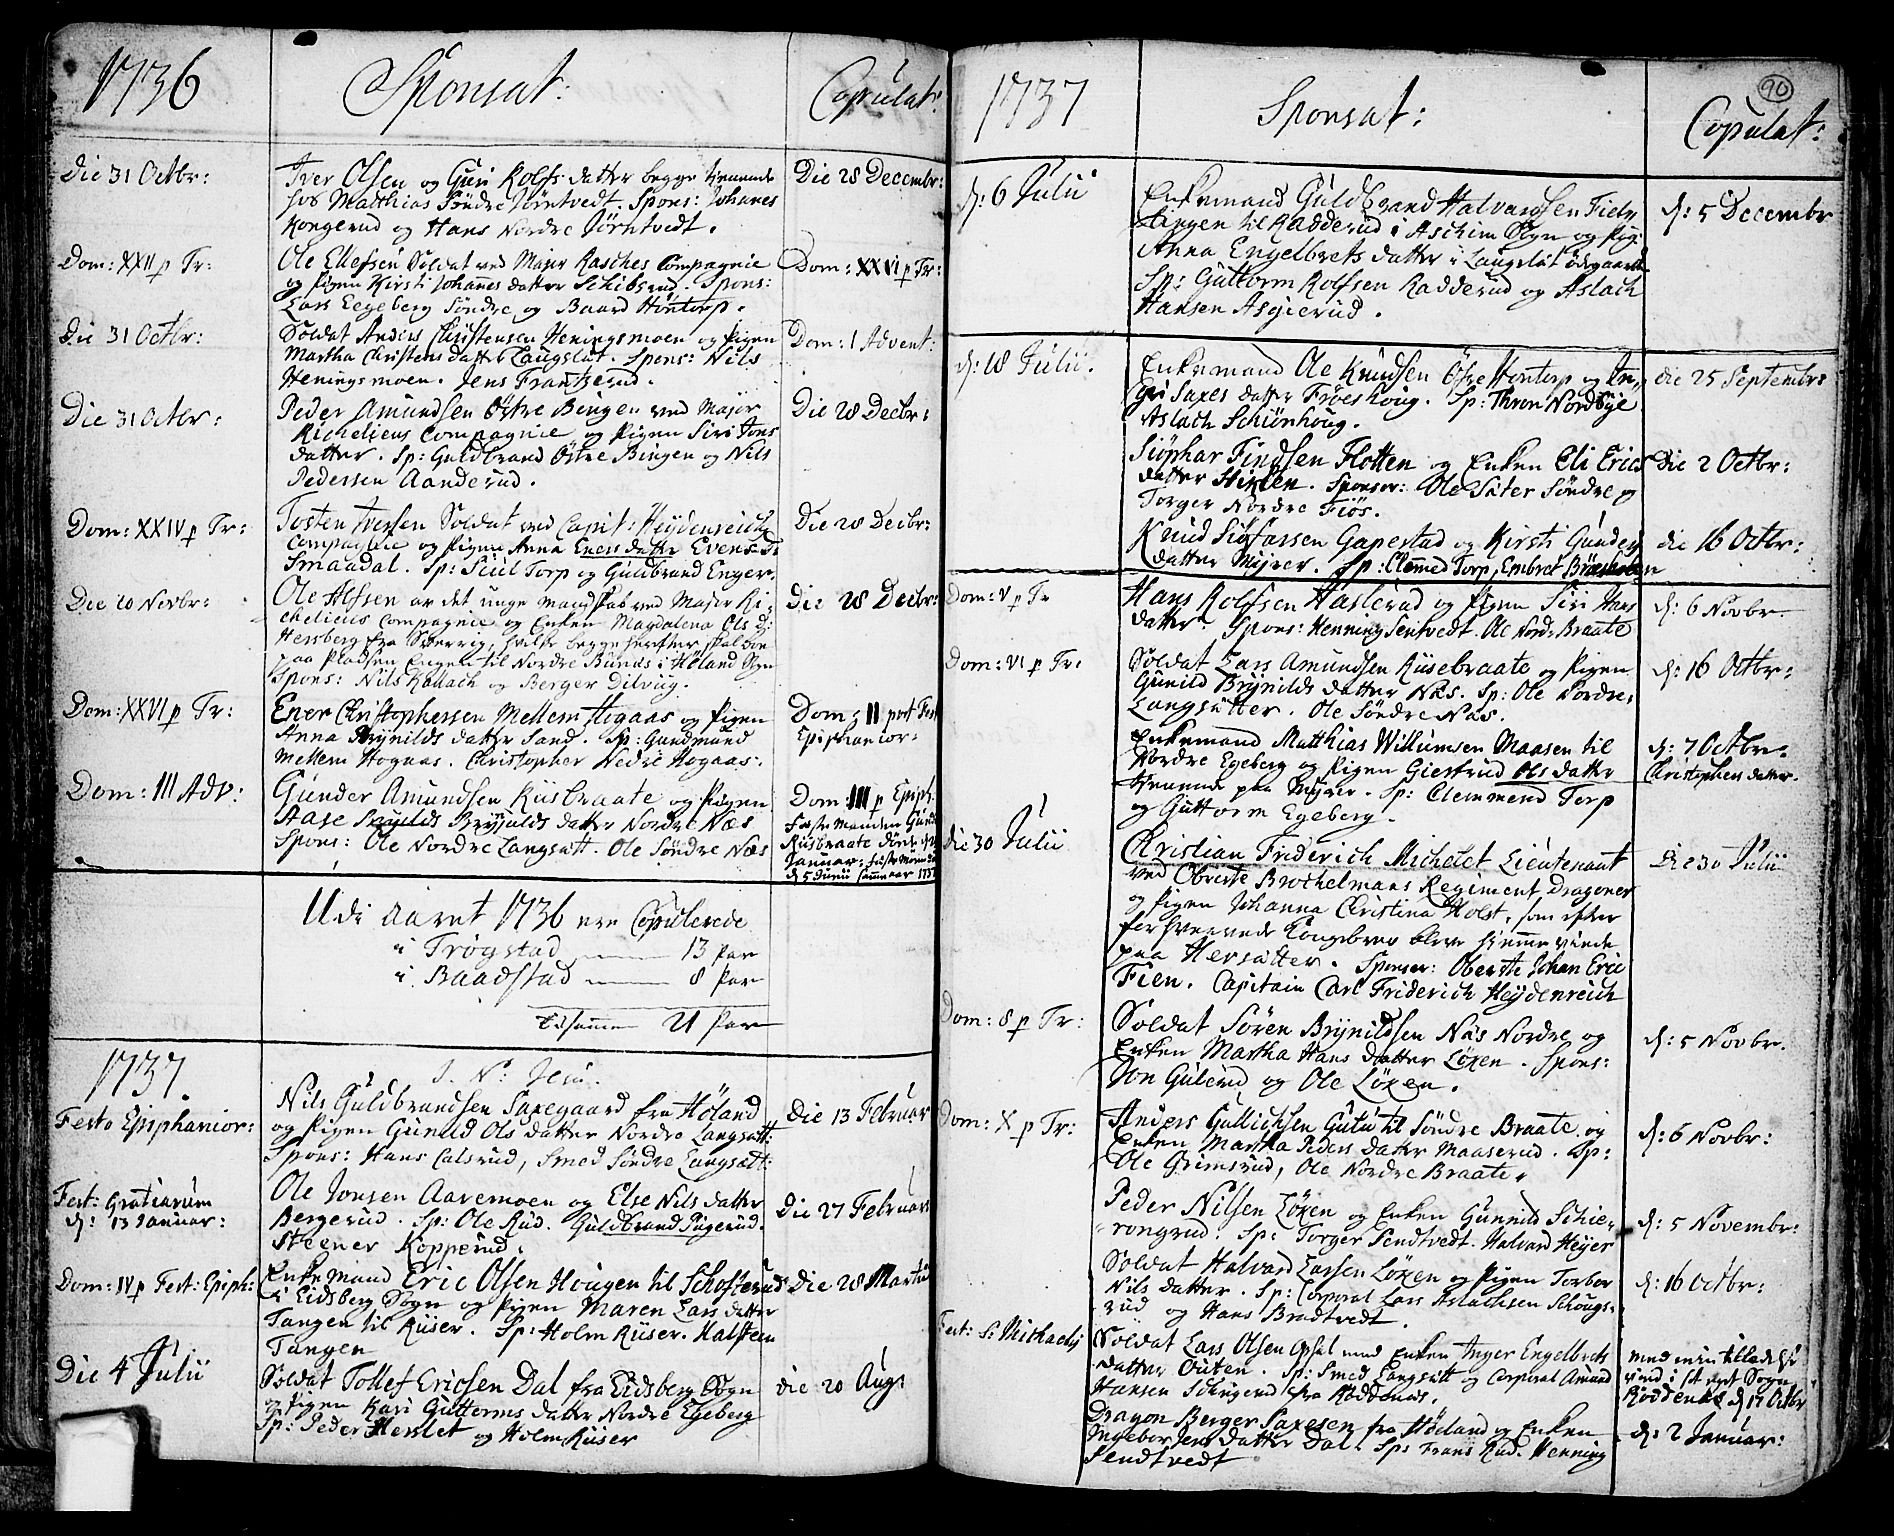 1736
Sponsat:
Copulat:
Die 31 Octbr:
Iver Olsen og Guri Rolfs datter begge tienende
hos Matthias Söndre Jörntvedt. Spons: Johanes
Kongerud og Hans Nordre Jörntvedt.
Die 28 Decembr:
Dom: XXII p Tr:
Ole Ellefsen Soldat ved Major Rasches Compagnie
og Pigen Kirsti Johanes datter Schibsrud. Spons:
Lars Eegeberg Söndre og Baard Höntorp.
Dom: XXVI p Tr:
Die 31 Octbr:
Soldat Anders Christensen Heningsmoen og Pigen
Martha Christens datter Langslat. Spons: Nils
Heningsmoen. Jens Frantzerud.
Dom: 1 Advent:
Die 31 Octbr:
Peder Amundsen Östre Bingen ved Major
Richelieus Compagnie og Pigen Siri Jons
datter. Sp: Guldbrand Östre Bingen og Nils
Pedersen Aanderud.
Die 28 Decbr:
Dom: XXIV p Tr:
Tosten Iversen Soldat ved Capit: Heydenreichs
Compagnie og Pigen Anna Eners datter Evens
Smaadal. Sp: Siul Torp og Guldbrand Enger.
Die 28 Decbr:
Die 20 Novbr:
Ole Alfsen av det unge mandskab ved Major Ri-
chelieus Compagnie og Enken Magdalena Ols d:
Hersberg fra Sverrig, hvilke begge herefter skal boe
paa Pladsen Engen til Nordre Bunds i Höland Sogn
Spons: Nils Kallach og Berger Dilviig.
Die 28 Decbr:
Dom: XXVI p Tr:
Ener Christophersen Mellem Hogaas og Pigen
Anna Brynilds datter Sand. Sp: Gundmund
Mellem Hogaas. Christopher Nedre Hogaas:
Dom: II post Fest
Epiphanior:
Dom: III Adv:
Gunder Amundsen Riisbraate og Pigen
Aase Brynilds datter Nordre Næs
Spons: Ole Nordre Langsætt. Ole Söndre Næs
Dom III p Epiph.
Feste Manden Gund
Riisbraate döde
Januar:
d 5 Junii samme aar 1737
Udi Aaret 1736 ere Copulerede
i Trögstad 13 Par
i Baadstad 8 Par
Tilsammen 21 Par
1737.
J. N: Jesu.
Festo Epiphanior:
Nils Guldbrandsen Saxegaard fra Höland
og Pigen Gunild Ols datter Nordre Langsætt:
Spons: Hans Calsrud, Smed Söndre Langsætt:
Die 13 Februar
Fest: Gratiarum
d: 13 Januar:
Ole Jonsen Aaremoen og Else Nils datter
Bergerud. Sp: Ole Rud. Guldbrand Sigerud.
Steener Kopperud.
Die 27 Februar
Dom: IV p Fest: Epiph:
Enke Mand Eric Olsen Hougen til Schofterud
i Eidsberg Sogn og Pigen Maren Lars datter
Tangen til Riiser. Sp: Holm Riiser. Halsteen
Tangen
Die 28 Martii
Die 4 Julii
Soldat Tollef Ericsen Dal fra Eidsberg Sogn
og Pigen Kari Guttorms datter Nordre Egeberg
Sp: Peder Herslet og Holm Riiser
die 20 Aug:
1737
Sponsat:
Copulat:
90
d: 6 Julii
Enkemand Guldbrand Halvardsen Fieln
Lingen til Radderud i Aschim Sogn og Pig:
Anna Engelbrets datter i Langslat ödegaard
Sp: Guttorm Rolfsen Radderud og Aslach
Hansen Asgierud.
d: 5 Decembr
d: 18 Julii.
Enkemand Ole Knudsen Östre Höntorp og In-
geri Saxes datter Fröeshoug. Sp: Thron Nordbye
Aslach Schiönhoug.
die 25 Septembr:
Siöphar Findsen Flotten og Enken Eli Erics
datter Stirlen. Sponser: Ole Säter Söndre og
Torger Nordre Fiös.
Die 2 Octbr:
Knud Siofarssen Gapestad og Kirsti Gunders
datter Myrer. Sp: Clemmed Torp, Embret Bræsholen
die 16 Octbr:
Dom: V p Tr
Hans Rolfsen Haslerud og Pigen Siri Hans
datter. Spons: Henning Sentvedt. Ole Nord: Braate
d: 6 Novbr.
Dom: VI p Tr:
Soldat Lars Amundsen Riisebraate og Pigen
Gunild Brynilds datter Näs. Sp: Ole Nordre
Langsätter. Ole Söndre Näs.
d: 16 Octbr:
Enkemand Matthias Willumsen Maasen til
Nordre Egeberg og Pigen Giertrud Ols datter
tienende paa Myrer. Sp: Clemmend Torp
og Guttorm Egeberg.
d: 7 Octbr.
Christophers datter.
die 30 Julii
Christian Friderich Michelet Lieutenant
ved Oberste Brochelmans Regiment Dragoner
og Pigen Johanna Christina Holst, som efter
forhvervede Kongebrev bleve hjemme viede
paa Hersätter. Sponser: Oberste Johan Eric
Fien. Capitain Carl Friderich Heydenreich
die 30 Julii
Dom: 8 p Tr:
Soldat Sören Brynildsen Näs Nordre og
Enken Martha Hans datter Löken. Spons:
Jon Gulerud og Ole Löxen.
d: 5 Novbr.
Dom: X p Tr:
Anders Gullichsen Gutu til Söndre Braate og
Enken Martha Peders datter Maaserud. Sp:
Ole Grimsrud, Ole Nordre Braate.
d: 6 Novbr:
Peder Nilsen Löxen og Enken Gunnild Schie-
rongrud. Sp: Torger Sendtvedt. Halvard Heyer
d: 5 Novembr:
Soldat Halvard Larsen Löxen og Pigen Torbor
Nils datter. Sp: Corporal Lars Aslachsen Schougs-
rud og Hans Bradtvedt.
d: 16 Octbr:
Fest: S: Michaelis
Soldat Lars Olsen Opsal med Enken Inger Engelbrets
datter Outen. Sp: Smed Langsætt og Corporal Amund
Hansen Schrigerud fra Röddenæs.
med min tilladelse
viied i sit eget Sogn
Röddenæs d 17 Octbr
Dragon Berger Saxesen fra Höeland og Enken
Ingebor Jens datter Dal. Sp: Frans Rud. Henning
Sendtvedt
d: 2 Januar: